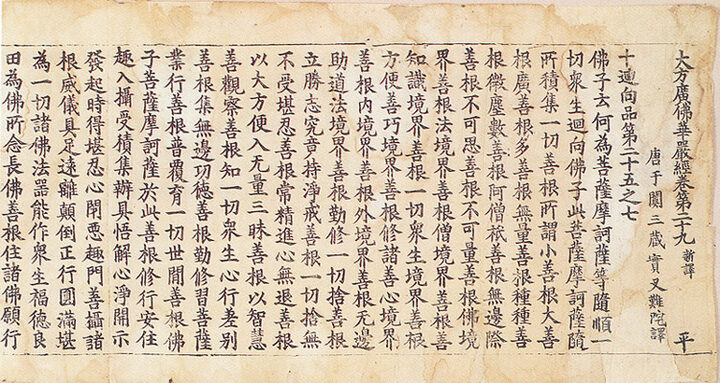 大方廣佛華嚴經卷第二十九 新譯 平
唐于闐三藏實叉難陀譯
十迴向品第二十五之七
佛子云何為菩薩摩訶薩等隨順一
切衆生迴向佛子此菩薩摩訶薩隨
所積集一切善根所謂小善根大善
根廣善根多善根無量善根種種善
根微塵數善根阿僧祇善根無邊際
善根不可思善根不可量善根佛境
界善根法境界善根僧境界善根善
知識境界善根一切衆生境界善根
方便善巧境界善根修諸善心境界
善根內境界善根外境界善根無邊
助道法境界善根勤修一切捨善根
立勝志究竟持淨戒善根一切捨無
不受堪忍善根常精進心無退善根
以大方便入无量三昧善根以智慧
善觀察善根知一切衆生心行差別
善根集無邊功德善根勤修習菩薩
業行善根普覆育一切世間善根佛
子菩薩摩訶薩於此善根修行安住
趣入攝受積集辦具悟解心淨開示
發起時得堪忍心閉惡趣門善攝諸
根威儀具足遠離顛倒正行圓滿堪
為一切諸佛法器能作衆生福德良
田為佛所念長佛善根住諸佛願行